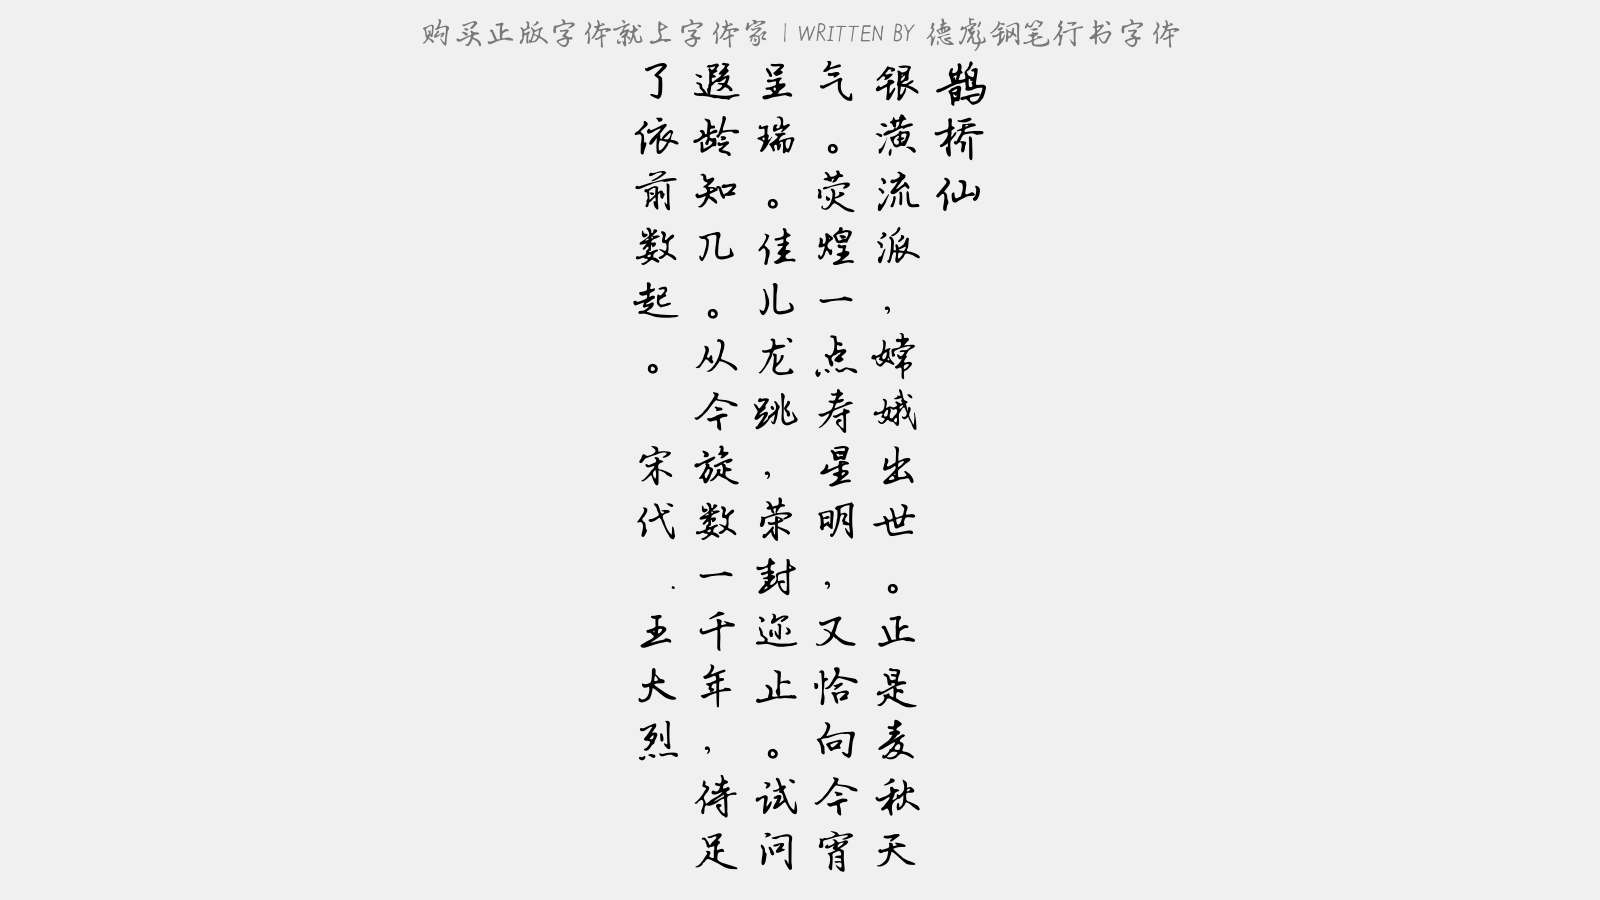 购买正版字体就上字体家 | WRITTEN BY 德彪钢笔行书字体
鹊桥仙
银潢流派，嫦娥出世。正是麦秋天
气。荧煌一点寿星明，又恰向今宵
呈瑞。佳儿龙跳，荣封迩止。试问
遐龄知几。从今旋数一千年，待足
了依前数起。 宋代 . 王大烈